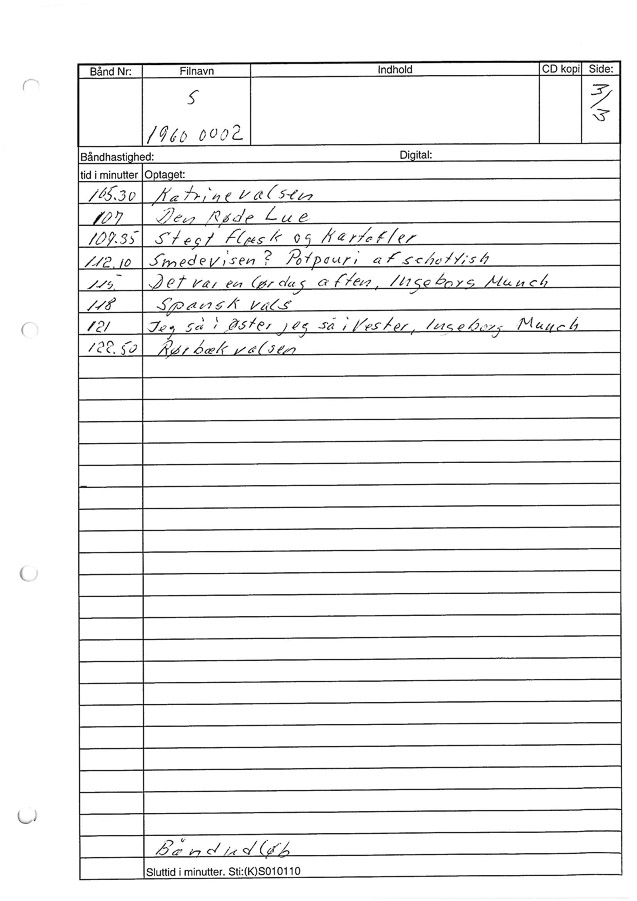 Bånd Nr: Filnavn Indhold CD kopi Side:
S 3/3
1960 0002
Båndhastighed: Digital:
tid i minutter Optaget:
105.30 Katrinevalsen
107 Den Røde Lue
109.35 Stegt Flæsk og Kartofler
112.10 Smedevisen? Potpouri af schottish
115 Det var en lørdag aften, Ingeborg Munch
118 Spansk vals
121 Jeg så i Øster jeg så i Vester, Ingeborg Munch
122.50 Rørbæk valsen
Båndudløb
Sluttid i minutter. Sti:(K)S010110